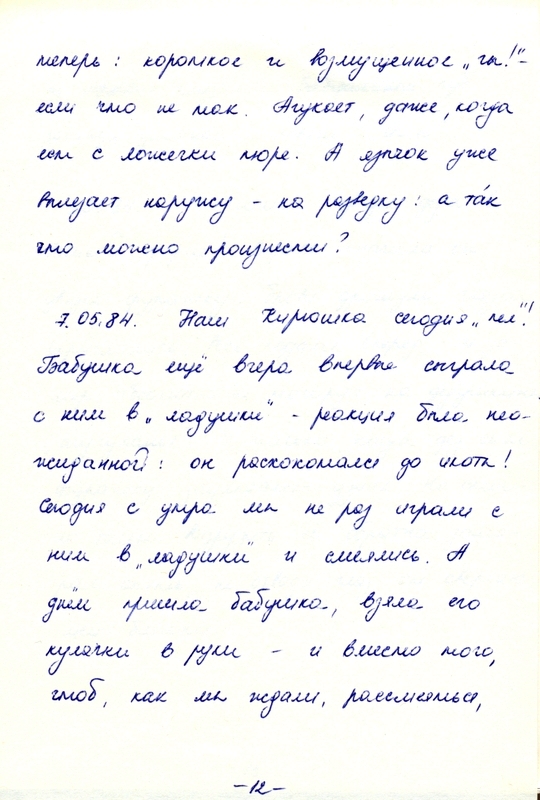 теперь: короткое и возмущенное „гы!"-
если что не так. Агукает, даже, когда
ест с ложечки пюре. А язычок уже
вылезает наружу - на разведку: а та́к
что можно произнести?
7.05.84. Наш Кирюшка сегодня „пел"!
Бабушка ещё вчера впервые сыграла
с ним в „ладушки" - реакция была нео-
жиданной: он расхохотался до икоты!
Сегодня с утра мы не раз играли с
ним в „ладушки" и смеялись. А
днём пришла бабушка, взяла его
кулачки в руки - и вместо того,
чтоб, как мы ждали, рассмеяться,
-12-